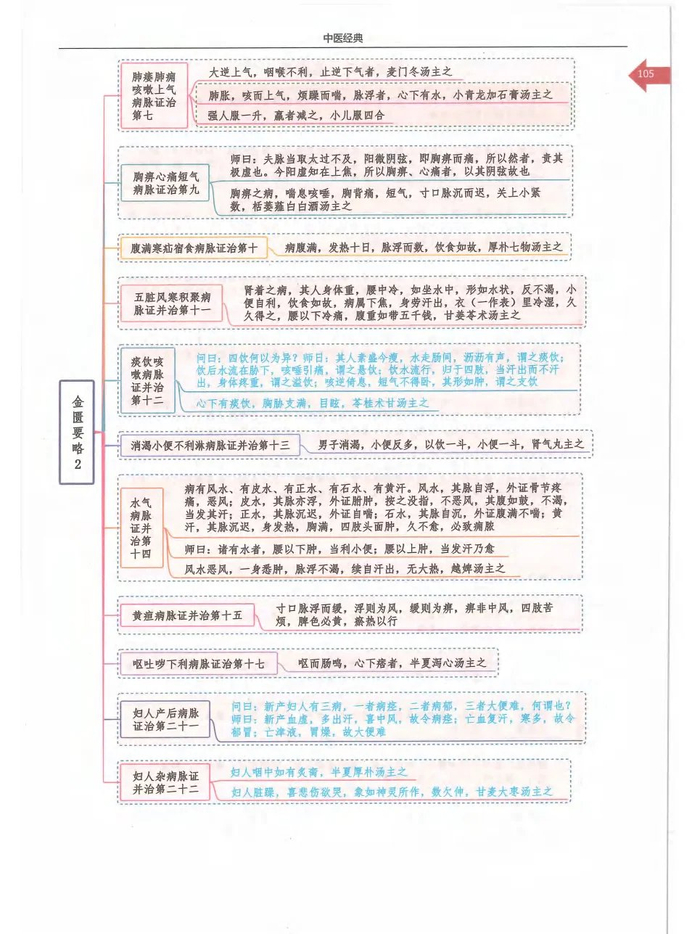 中医经典
105
金匮要略2
肺痿肺痈
咳嗽上气
病脉证治
第七
大逆上气，咽喉不利，止逆下气者，麦门冬汤主之
肺胀，咳而上气，烦躁而喘，脉浮者，心下有水，小青龙加石膏汤主之
强人服一升，羸者减之，小儿服四合
胸痹心痛短气
病脉证治第九
师曰：夫脉当取太过不及，阳微阴弦，即胸痹而痛，所以然者，责其
极虚也。今阳虚知在上焦，所以胸痹、心痛者，以其阴弦故也
胸痹之病，喘息咳唾，胸背痛，短气，寸口脉沉而迟，关上小紧
数，栝蒌薤白白酒汤主之
腹满寒疝宿食病脉证治第十
病腹满，发热十日，脉浮而数，饮食如故，厚朴七物汤主之
五脏风寒积聚病
脉证并治第十一
肾着之病，其人身体重，腰中冷，如坐水中，形如水状，反不渴，小
便自利，饮食如故，病属下焦，身劳汗出，衣（一作表）里冷湿，久
久得之，腰以下冷痛，腹重如带五千钱，甘姜苓术汤主之
痰饮咳
嗽病脉
证并治
第十二
问曰：四饮何以为异？师曰：其人素盛今瘦，水走肠间，沥沥有声，谓之痰饮；
饮后水流在胁下，咳唾引痛，谓之悬饮；饮水流行，归于四肢，当汗出而不汗
出，身体疼重，谓之溢饮；咳逆倚息，短气不得卧，其形如肿，谓之支饮
心下有痰饮，胸胁支满，目眩，苓桂术甘汤主之
消渴小便不利淋病脉证并治第十三
男子消渴，小便反多，以饮一斗，小便一斗，肾气丸主之
水气
病脉
证并
治第
十四
病有风水、有皮水、有正水、有石水、有黄汗。风水，其脉自浮，外证骨节疼
痛，恶风；皮水，其脉亦浮，外证胕肿，按之没指，不恶风，其腹如鼓，不渴，
当发其汗；正水，其脉沉迟，外证自喘；石水，其脉自沉，外证腹满不喘；黄
汗，其脉沉迟，身发热，胸满，四肢头面肿，久不愈，必致痈脓
师曰：诸有水者，腰以下肿，当利小便；腰以上肿，当发汗乃愈
风水恶风，一身悉肿，脉浮不渴，续自汗出，无大热，越婢汤主之
黄疸病脉证并治第十五
寸口脉浮而缓，浮则为风，缓则为痹，痹非中风，四肢苦
烦，脾色必黄，瘀热以行
呕吐哕下利病脉证治第十七
呕而肠鸣，心下痞者，半夏泻心汤主之
妇人产后病脉
证治第二十一
问曰：新产妇人有三病，一者病痉，二者病郁，三者大便难，何谓也？
师曰：新产血虚，多出汗，喜中风，故令病痉；亡血复汗，寒多，故令
郁冒；亡津液，胃燥，故大便难
妇人杂病脉证
并治第二十二
妇人咽中如有炙脔，半夏厚朴汤主之
妇人脏躁，喜悲伤欲哭，象如神灵所作，数欠伸，甘麦大枣汤主之